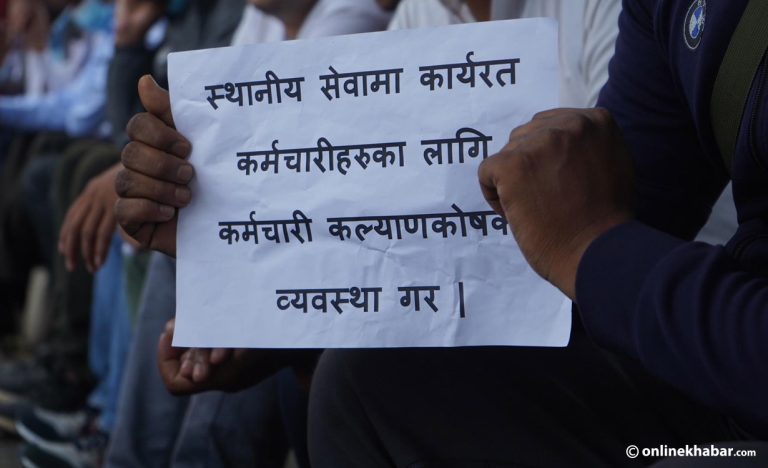 स्थानीय सेवामा कार्यरत
कर्मचारीहरुका लागि
कर्मचारी
व्यवस्था गर ।
© onlinekhabar.com